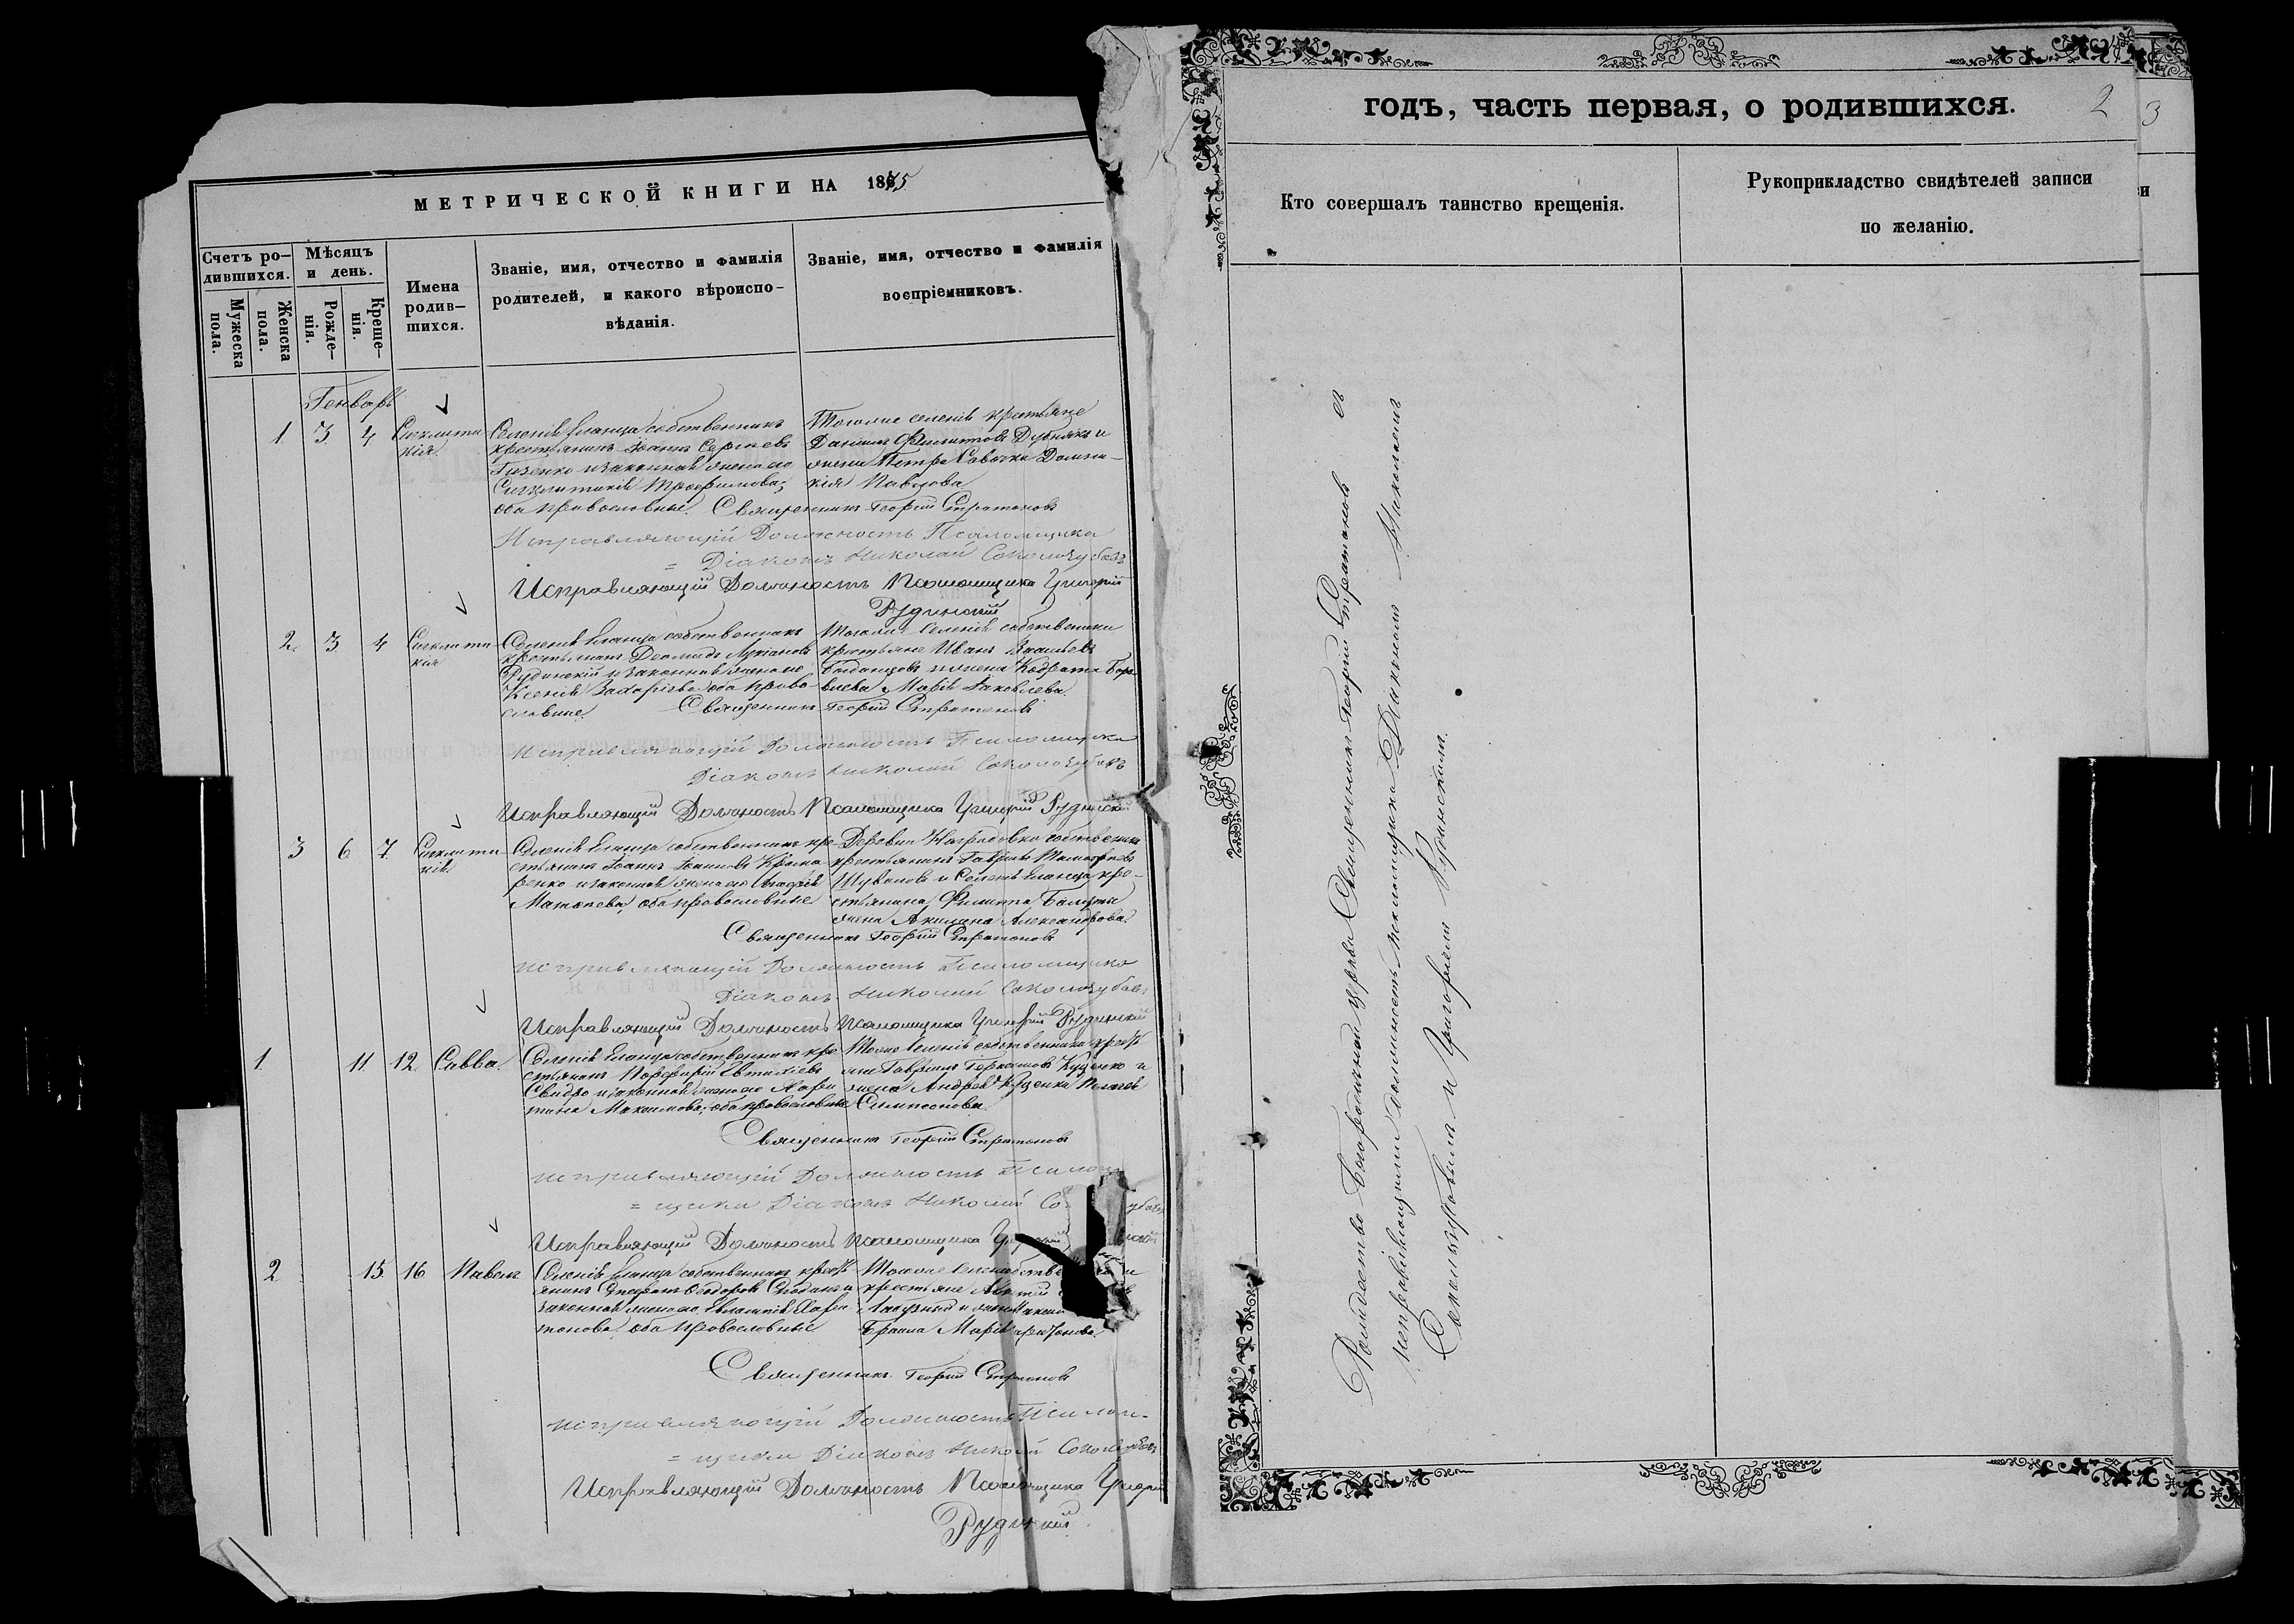 МЕТРИЧЕСКОЙ КНИГИ НА 1875
Счетъ ро-
дившихся.
Мѣсяцъ
и день.
Имена
родив-
шихся.
Званіе, имя, отчество и фамилія
родителей, и какого вѣроиспо-
вѣданія.
Званіе, имя, отчество и фамилія
воспріемниковъ.
Мужеска
пола.
Женска
пола.
Рожде-
нія.
Креще-
нія.
Генварь
1 3 4 Сигклити-
кія
Селенія Еланца собственникъ
крестьянинъ Іоаннъ Сергіевъ
и законная жена его
Сигклитикія Трофимова,
оба православные.
Тогоже селенія крестьяне
Даніилъ Филиповъ Дубнякъ и
жена Петра Савочки Домни-
кія Павлова
Священникъ Георгій Стратоновъ
Исправляющій Должность Псаломщика
= Діаконъ Николай Соколозубовъ
Исправляющій Должность Псаломщика Григорій
Рудинскій
2. 3 4 Сигклити-
кія
Селенія Еланца собственникъ
крестьянинъ Деомидъ Лукіановъ
Рудинскій и законная жена его
Ксенія Захаріева оба право-
славные.
Тогоже Селенія собственники
крестьяне Иванъ Васильевъ
и жена Кодрата
Марія Іаковлева.
Священникъ Георгій Стратоновъ
Исправляющій Должность Псаломщика
Діаконъ Николай Соколозубовъ
Исправляющій Должность Псаломщика Григорій Рудинскій
3 6 7 Сигклити-
кія
Селенія Еланца собственникъ кре-
стьянинъ Іоаннъ Іоанновъ
и законная жена его Агафія
Матвѣева, оба православные
Деревни собственникъ
крестьянинъ Гавріилъ Тимофѣевъ
Шуваловъ и Селенія Еланца кре-
стьянина Филиппа
жена Акилина Александрова.
Священникъ Георгій Стратоновъ
Исправляющій Должность Псаломщика
Діаконъ Николай Соколозубовъ
Исправляющій Должность Псаломщика Григорій Рудинскій
1. 11 12. Савва.
Селенія Еланца собственникъ кре-
стьянинъ Порфирій Евтихіевъ
Свидро и законная жена его Хари-
тина Максимова, оба православные
Тогоже Селенія собственники кресть-
яне Гавріилъ Куценко и
жена Андрея Куценка Пелагея
Симеонова.
Священникъ Георгій Стратоновъ
Исправляющій Должность Псалом-
= щика Діаконъ Николай Со
Исправляющій Должность Псаломщика
2 15 16 Павелъ
Селенія Еланца собственникъ кресть-
янинъ Спиридонъ Ѳеодоровъ
законная жена его Евлампія Хари-
тонова, оба православные
Тогоже Селенія
крестьяне
и жена
Марія
Священникъ Георгій Стратоновъ
Исправляющій Должность Псалом-
= щика Діаконъ Николай Соколозубовъ
Исправляющій Должность Псаломщика Григорій
Рудинскій
годъ, часть первая, о родившихся.
2
3
Кто совершалъ таинство крещенія.
Рукоприкладство свидѣтелей записи
по желанію.
Рождество Богородичной церкви Священникъ Георгій Стратоновъ съ
исправляющими должность псаломщика Діакономъ Николаемъ
Соколозубовымъ и Григоріемъ Рудинскимъ.